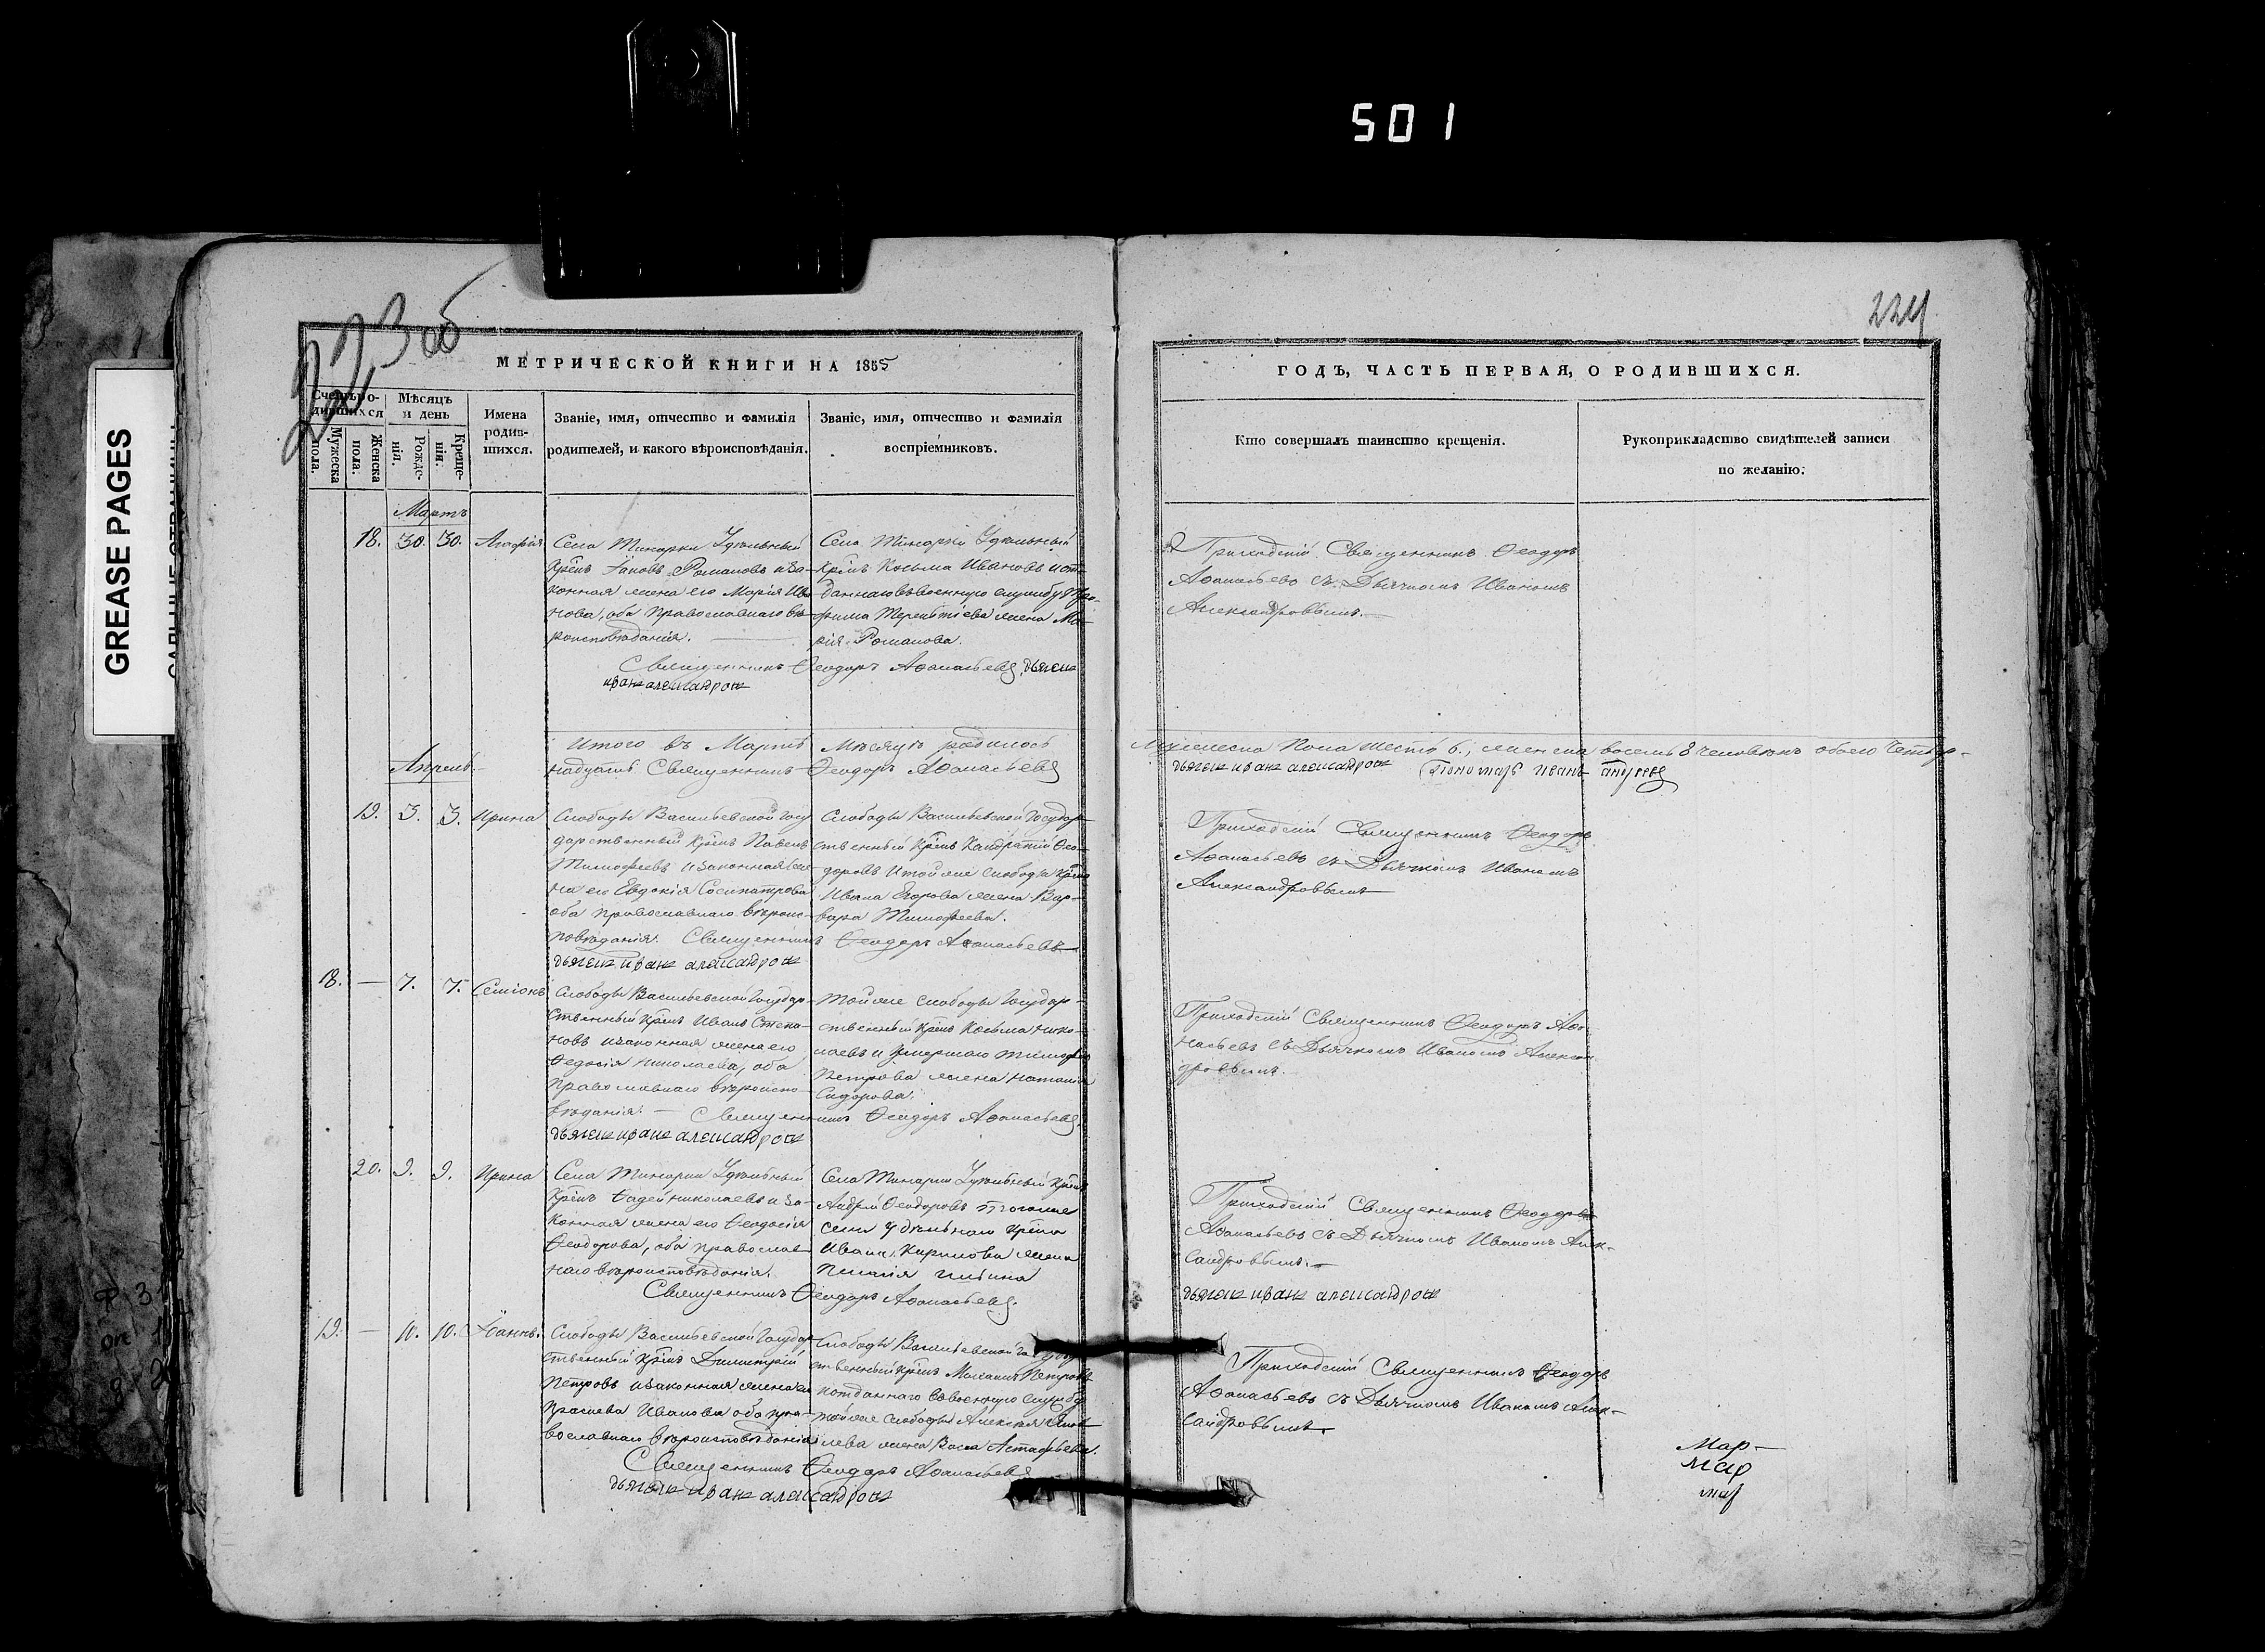 501
GREASE PAGES
223 об
224
МЕТРИЧЕСКОЙ КНИГИ НА 1855
ГОДЪ, ЧАСТЬ ПЕРВАЯ, О РОДИВШИХСЯ.
Счетъ родившихся
Мужеска пола.
Женска пола.
Мѣсяцъ и день
Рожденія.
Крещенія.
Имена родившихся.
Званіе, имя, отчество и фамилія
родителей, и какого вѣроисповѣданія.
Званіе, имя, отчество и фамилія
воспріемниковъ.
Кто совершалъ таинство крещенія.
Рукоприкладство свидѣтелей записи
по желанію.
Мартъ
18. 30. 30. Агафія
Села Тинарки Удѣльный
Крѣнъ Іаковъ Романовъ и за-
конная жена его Марія Ива
нова, оба православнаго вѣ-
роисповѣданія.
Села Тинарки Удѣльный
Крѣнъ Косьма Ивановъ и от-
даннаго въ военную службу
Терентіева жена Ма-
рія Романова.
Священникъ Ѳеодоръ Аѳанасьевъ, дьячек
иван александров
Приходскій Священникъ Ѳеодоръ
Аѳанасьевъ съ Дьячкомъ Иваномъ
Александровымъ.
Итого въ Мартѣ Мѣсяцѣ родилось
мужеска пола шесть 6, женска восемь 8 человѣкъ обоего четыр-
надцать Священникъ Ѳеодоръ Аѳанасьевъ
дьячек иван александров Пономарь Иванъ Андреевъ
Апрель.
19. 3. 3. Ирина
Слободы Васильевской Госу
дарственный Крѣнъ Павелъ
Тимофеевъ и законная же
на его Евдокія Сосипатрова
оба православнаго вѣроис-
повѣданія. Священникъ Ѳеодоръ Аѳанасьевъ
дьячек иван александров
Слободы Васильевской Государ
ственный Крѣнъ Кандратій Ѳео-
доровъ и той же слободы Крѣна
Ивана Егорова жена Вар-
вара Тимофеева.
Приходскій Священникъ Ѳеодоръ
Аѳанасьевъ съ Дьячкомъ Иваномъ
Александровымъ
18. — 7. 7. Симеонъ
Слободы Васильевской Государ-
ственный Крѣнъ Иванъ Степа-
новъ и законная жена его
Ѳедосія Николаева, оба
православнаго вѣроиспо-
вѣданія. — Священникъ Ѳеодоръ Аѳанасьевъ.
дьячек иван александров
Той же слободы Государ-
ственный Крѣнъ Косьма Нико-
лаевъ и умершаго Тимофея
Петрова жена Наталія
Сидорова.
Приходскій Священникъ Ѳеодоръ Аѳа-
насьевъ съ Дьячкомъ Иваномъ Алексан
дровымъ.
20. 9. 9. Ирина
Села Тинарки Удѣльный
Крѣнъ Ѳадей Николаевъ и за-
конная жена его Ѳеодосія
Ѳеодорова, оба православ-
наго вѣроисповѣданія.
Священникъ Ѳеодоръ Аѳанасьевъ.
Села Тинарки Удѣльный Крѣнъ
Андрей Ѳеодоровъ того же
села удѣльнаго Крѣна
Ивана Кирилова жена
Пелагія Ильина
Приходскій Священникъ Ѳеодоръ
Аѳанасьевъ съ Дьячкомъ Иваномъ Алек-
сандровымъ.
дьячек иван александров
19. — 10. 10. Іоаннъ.
Слободы Васильевской Государ
ственный Крѣнъ Димитрій
Петровъ и законная жена его
Ивановa оба пра-
вославнаго вѣроисповѣданія
Священникъ Ѳеодоръ Аѳанасьевъ
дьячек иван александров
Слободы Васильевской Государ
ственный Крѣнъ Петровъ
и отданнаго въ военную службу
той же слободы Алексѣя Яков
лева жена Васса Астафьева.
Приходскій Священникъ Ѳеодоръ
Аѳанасьевъ съ Дьячкомъ Иваномъ Алек-
сандровымъ.
Мар-
мар
мар